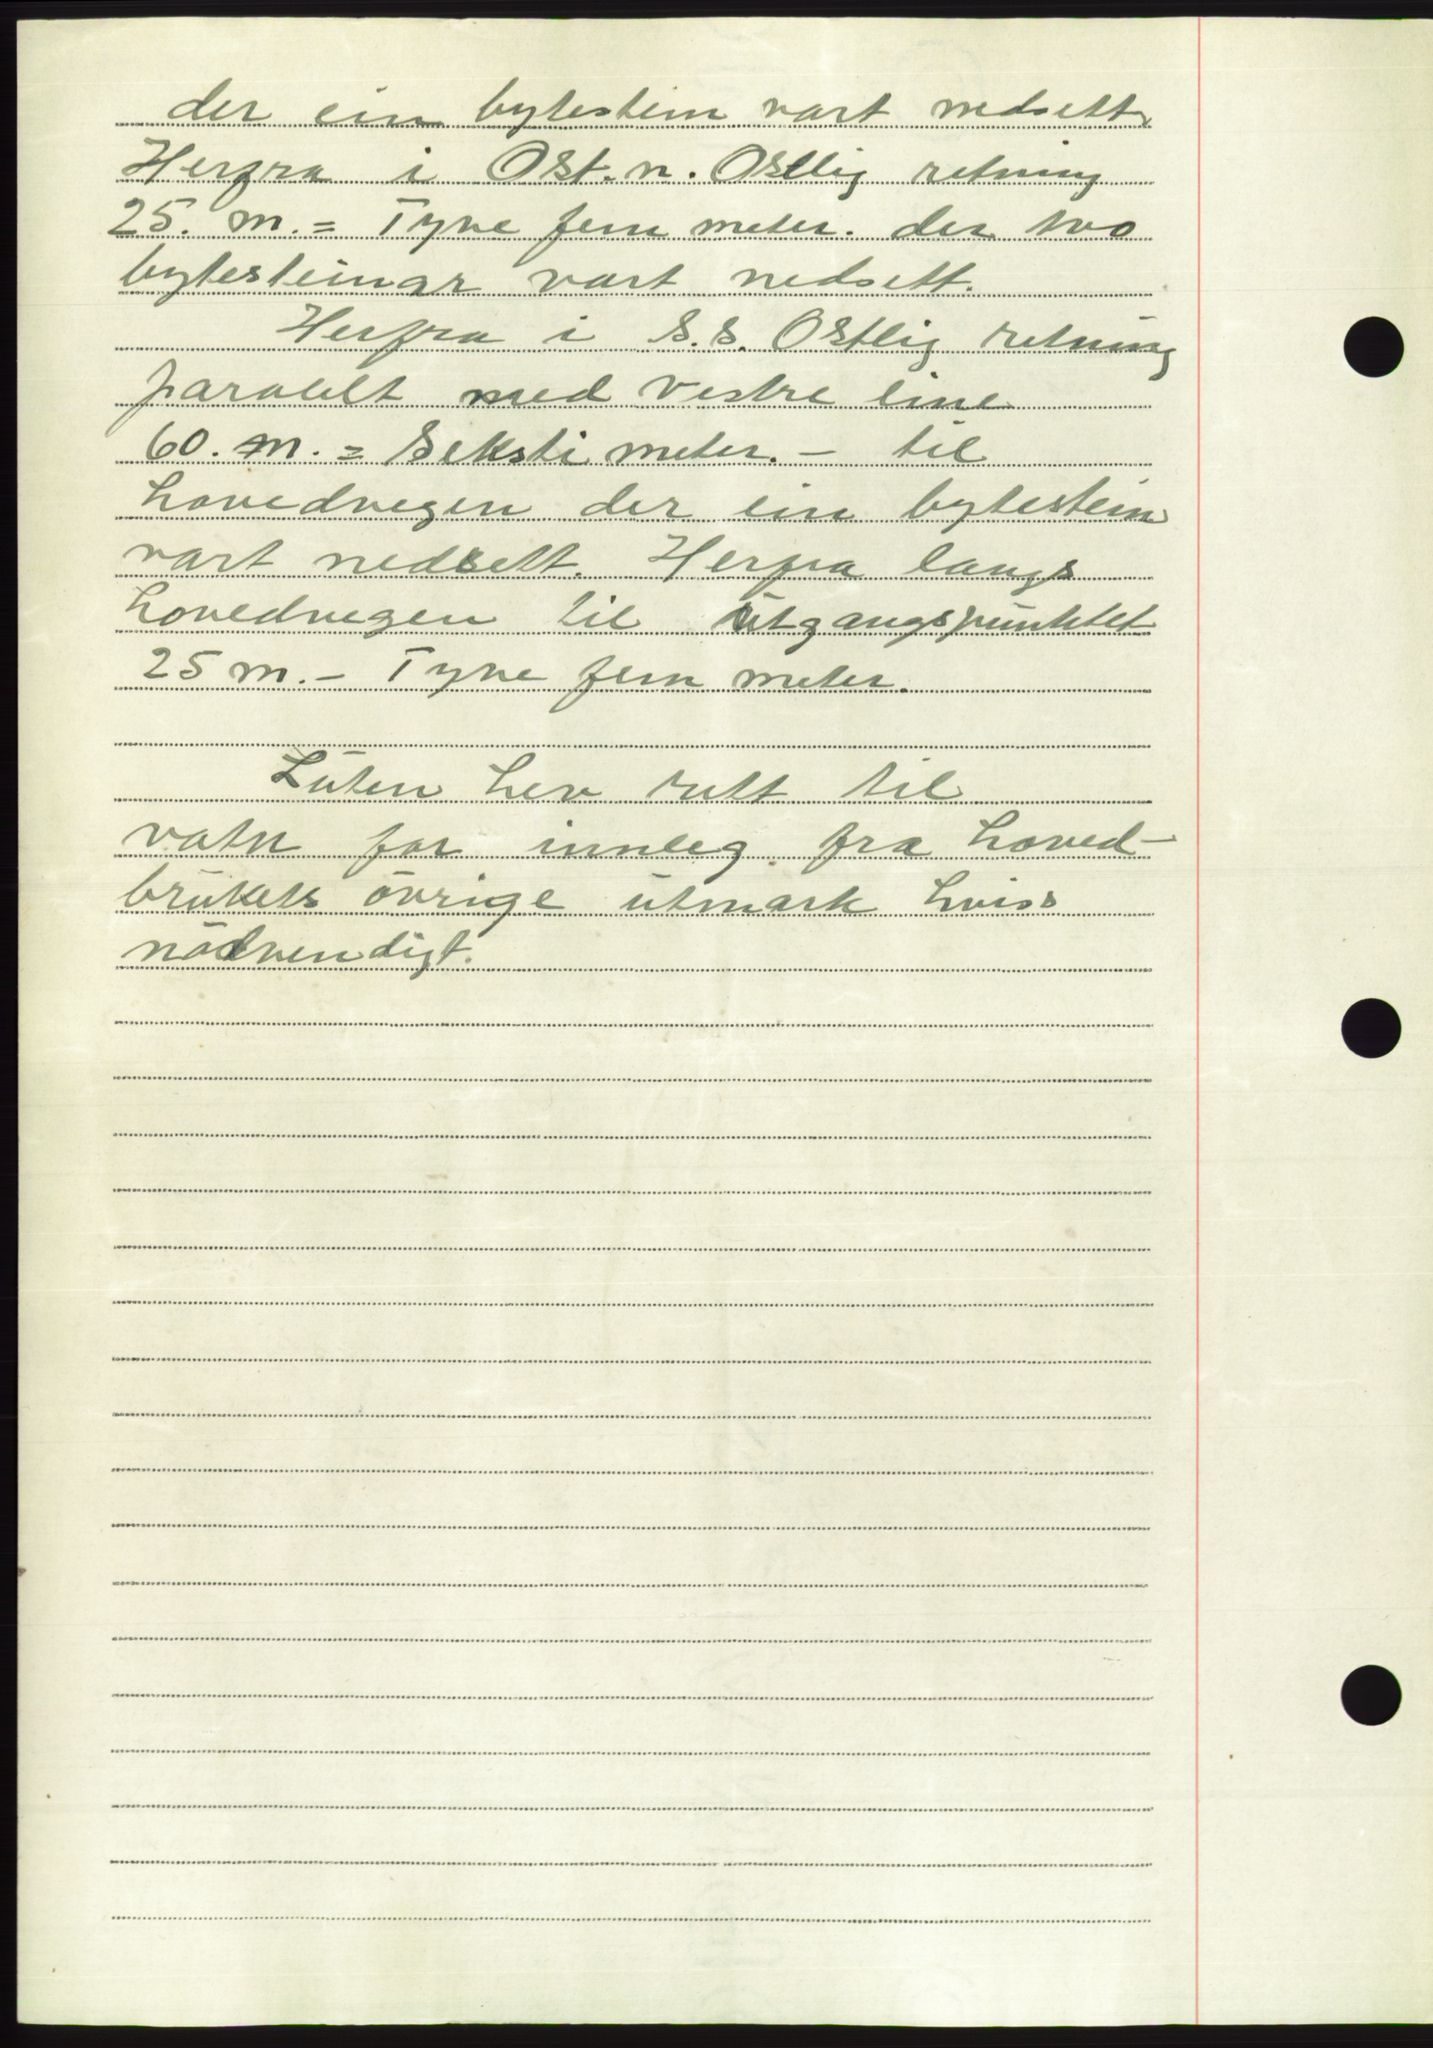 der ein bytestein vart nedsett.
Herfra i Ost. n. Ostlig retning
25. m. = Tyve fem meter. der tvo
bytesteinar vart nedsett.
Herfra i S.S. Ostlig retning
paralelt med vestre line
60. m. = Seksti meter. - til
hovedvegen der ein bytestein
vart nedsett. Herfra langs
hovedvegen til utgangspunktet
25 m. - Tyve fem meter.
Luten hev rett til
vatn for innleg fra hoved-
brukets övrige utmark hviss
nödvendigt.